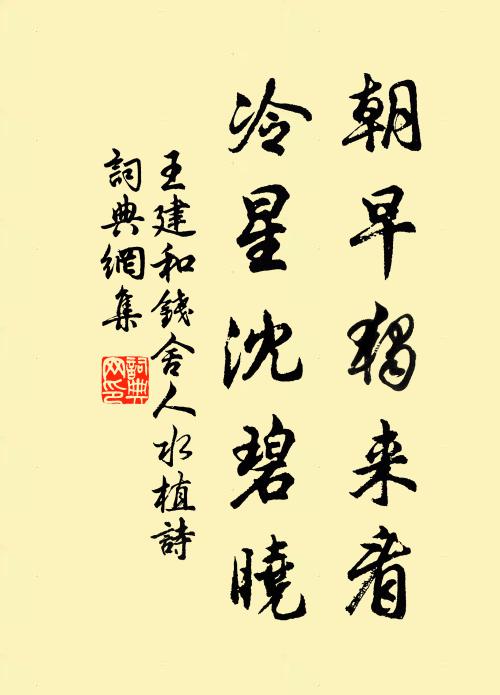 朝早獨来看
冷星沈碧曉
王建和錢舍人水植詩
詞典網集
詞典网印